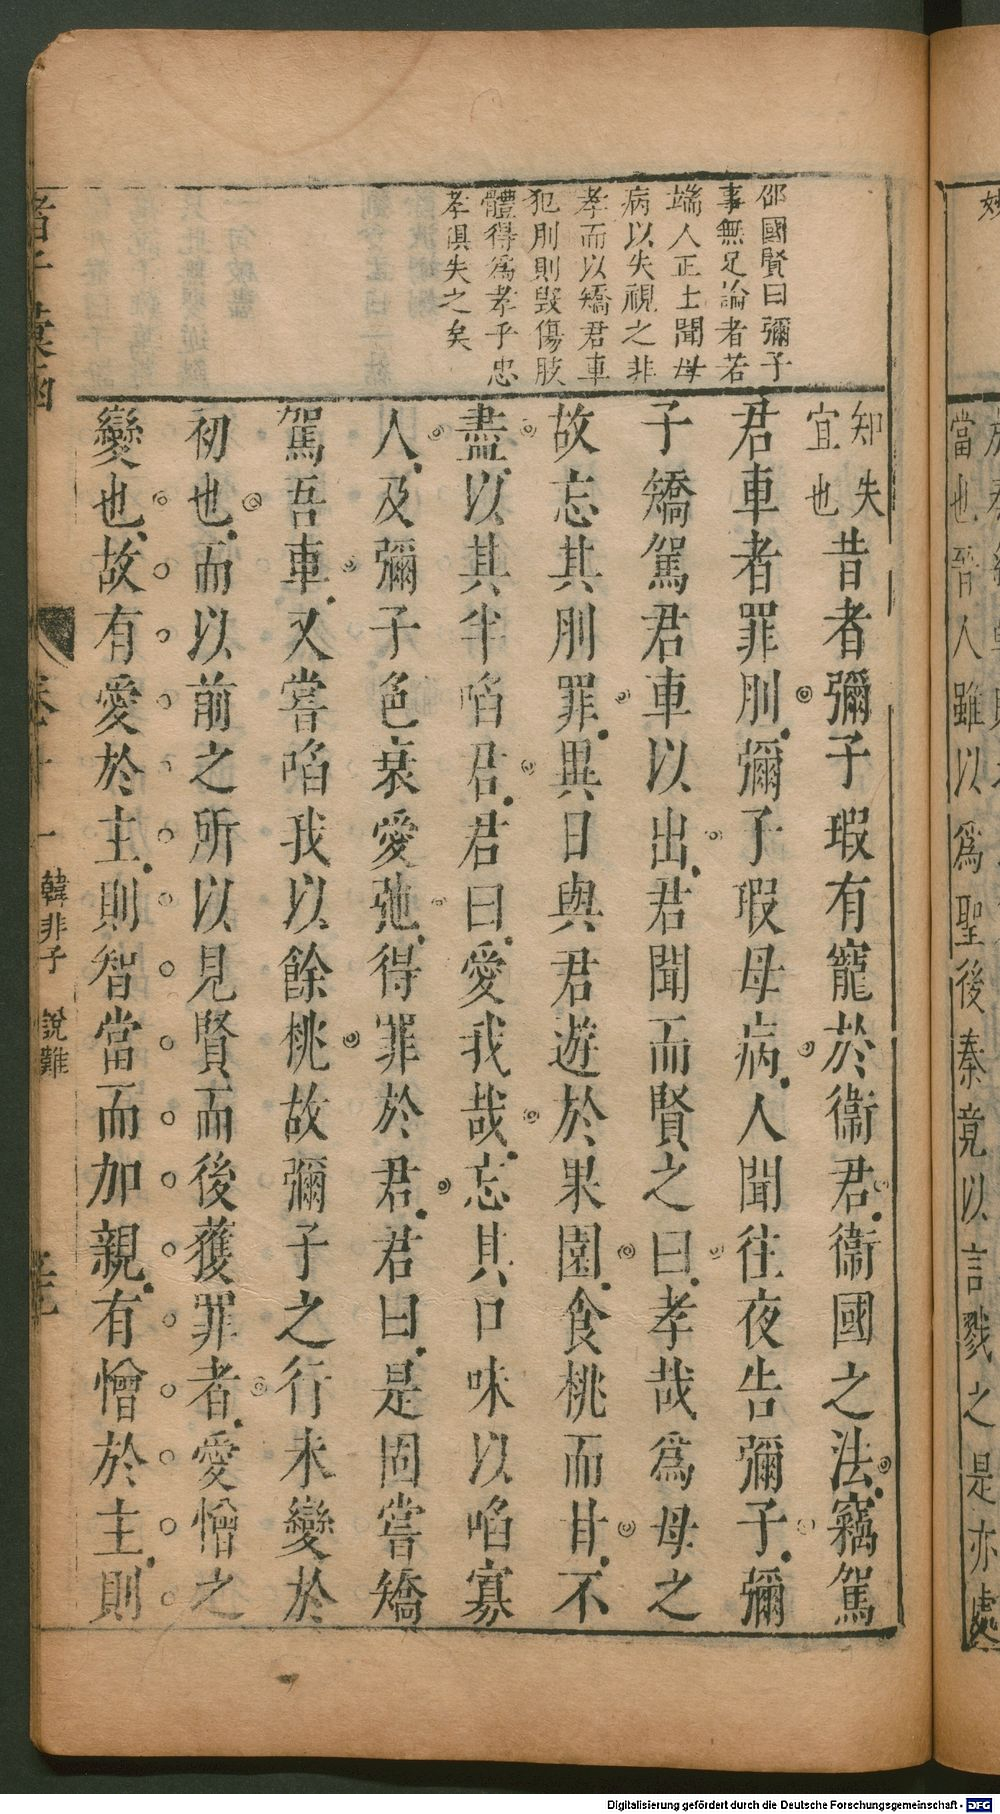 邵國賢曰彌子
事無足論者若
端人正士聞母
病以失視之非
孝而以矯君車
犯刖則毀傷肢
體得爲孝乎忠
孝俱失之矣
知失
宜也
昔者彌子瑕有寵於衞君衞國之法竊駕
君車者罪刖彌子瑕母病人聞往夜告彌子彌
子矯駕君車以出君聞而賢之曰孝哉爲母之
故忘其刖罪異日與君遊於果園食桃而甘不
盡以其半啗君君曰愛我哉忘其口味以啗寡
人及彌子色衰愛弛得罪於君君曰是固嘗矯
駕吾車又嘗啗我以餘桃故彌子之行未變於
初也而以前之所以見賢而後獲罪者愛憎之
變也故有愛於主則智當而加親有憎於主則
韓非子 說難
妙
當也晉人雖以爲聖後秦竟以言戮之是亦處
Digitalisierung gefördert durch die Deutsche Forschungsgemeinschaft - DFG